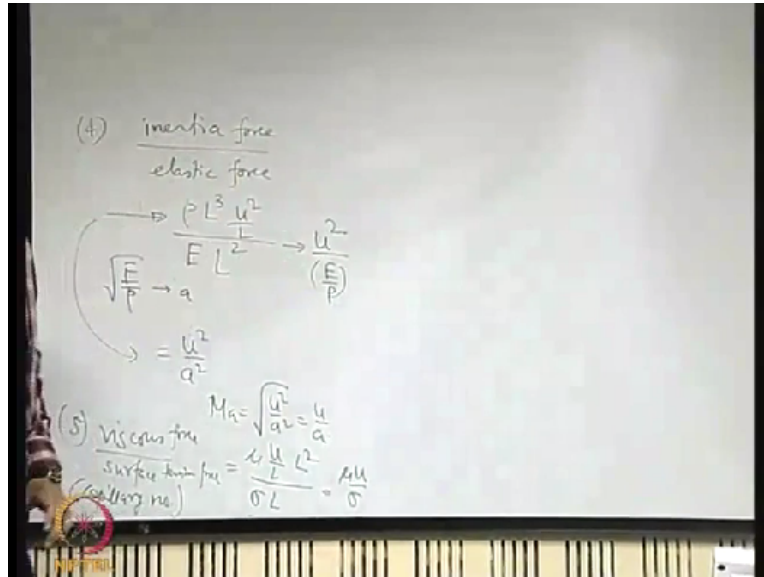 (4) inertia force
elastic force
→ ρL³ u²/L
E L² → u²/(E/ρ)
√E/ρ → a
= u²/a²
Ma = √u²/a² = u/a
(5) Viscous force
surface tension force = μ u/L L²
σL = μu/σ
(Capillary no)
NPTEL